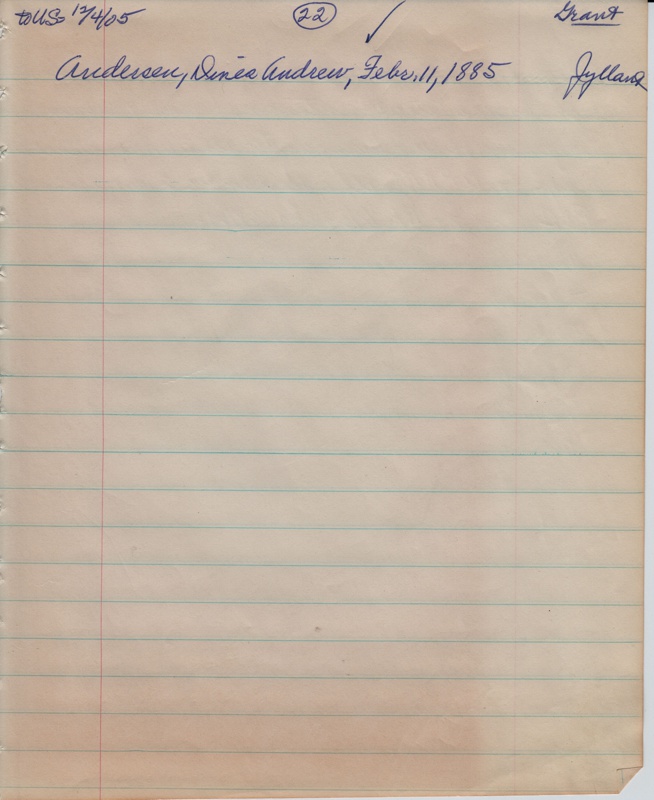 to U.S. 12/4/05 22 Grant
Andersen, Dines Andrew, Febr. 11, 1885 Jylland